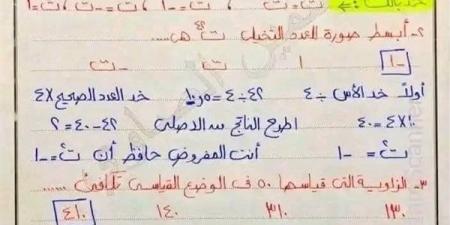 خد بالك :⇐ ت¹=ت ، ت²=-١ ، ت³=-ت ، ت⁴=١
٢- أبسط صورة للعدد التخيلى ت⁴² هى....
-١ ١ ت -ت
أولاً خد الأس ÷ ٤ ٤٢ ÷ ٤ = ١٠٫٥ خد العدد الصحيح ×٤
١٠×٤ = ٤٠ اطرح الناتج من الاصلى ٤٢-٤٠=٢
ت² = -١ أنت المفروض حافظ أن ت² = -١
٣- الزاوية التى قياسها ٥٠ فى الوضع القياسى تكافئ .....
١٣٠ ٣١٠ ١٤٠ ٤١٠